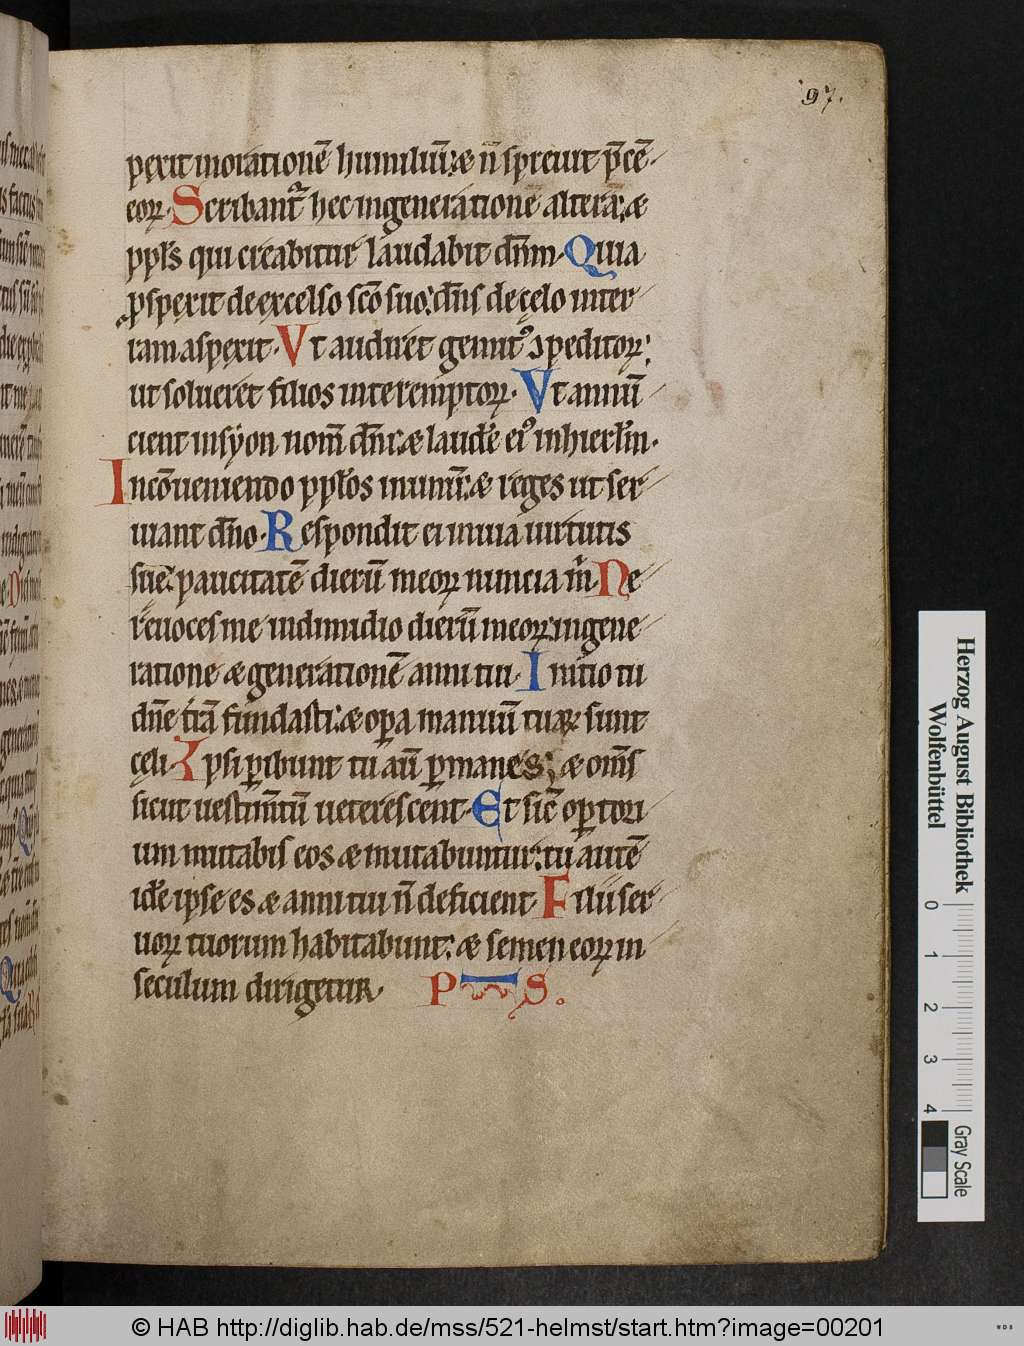 97.
pexit inorationē humiliū: & n̄ spreuit p̄cē.
eoꝝ. Scribant᷑ hec ingeneratione altera: &
ppl̄s qui creabitur laudabit dn̄m. Quia
ꝓspexit de excelso sc̄o suo: dn̄s de cęlo inter
ram aspexit. Vt audiret gemitꝰ ↄpeditoꝝ:
ut solueret filios interemptoꝝ. Vt annū
cient insyon nom̄ dn̄i: & laudē eiꝰ inhierl̄m.
Incōueniendo ppl̄os inunū: & reges ut ser
uiant dn̄o. Respondit ei inuia uirtutis
suę: paucitatē dierū meoꝝ nuncia m̄. Ne
reuoces me indimidio dierū meoꝝ: ingene
ratione & generationē anni tui. Initio tu
dn̄e trā fundasti: & oꝑa manuū tuaꝝ sunt
cęli. Ipsi ꝑibunt tu aū ꝑmanes: & om̄s
sicut uestim̄tū ueterescent. Et sic̄ oꝑtori
um mutabis eos & mutabuntur: tu autē
idē ipse es & anni tui n̄ deficient. Filii ser
uoꝝ tuorum habitabunt: & semen eoꝝ in
seculum dirigetur. PS.
Herzog August Bibliothek
Wolfenbüttel
0 1 2 3 4
Gray Scale
© HAB http://diglib.hab.de/mss/521-helmst/start.htm?image=00201